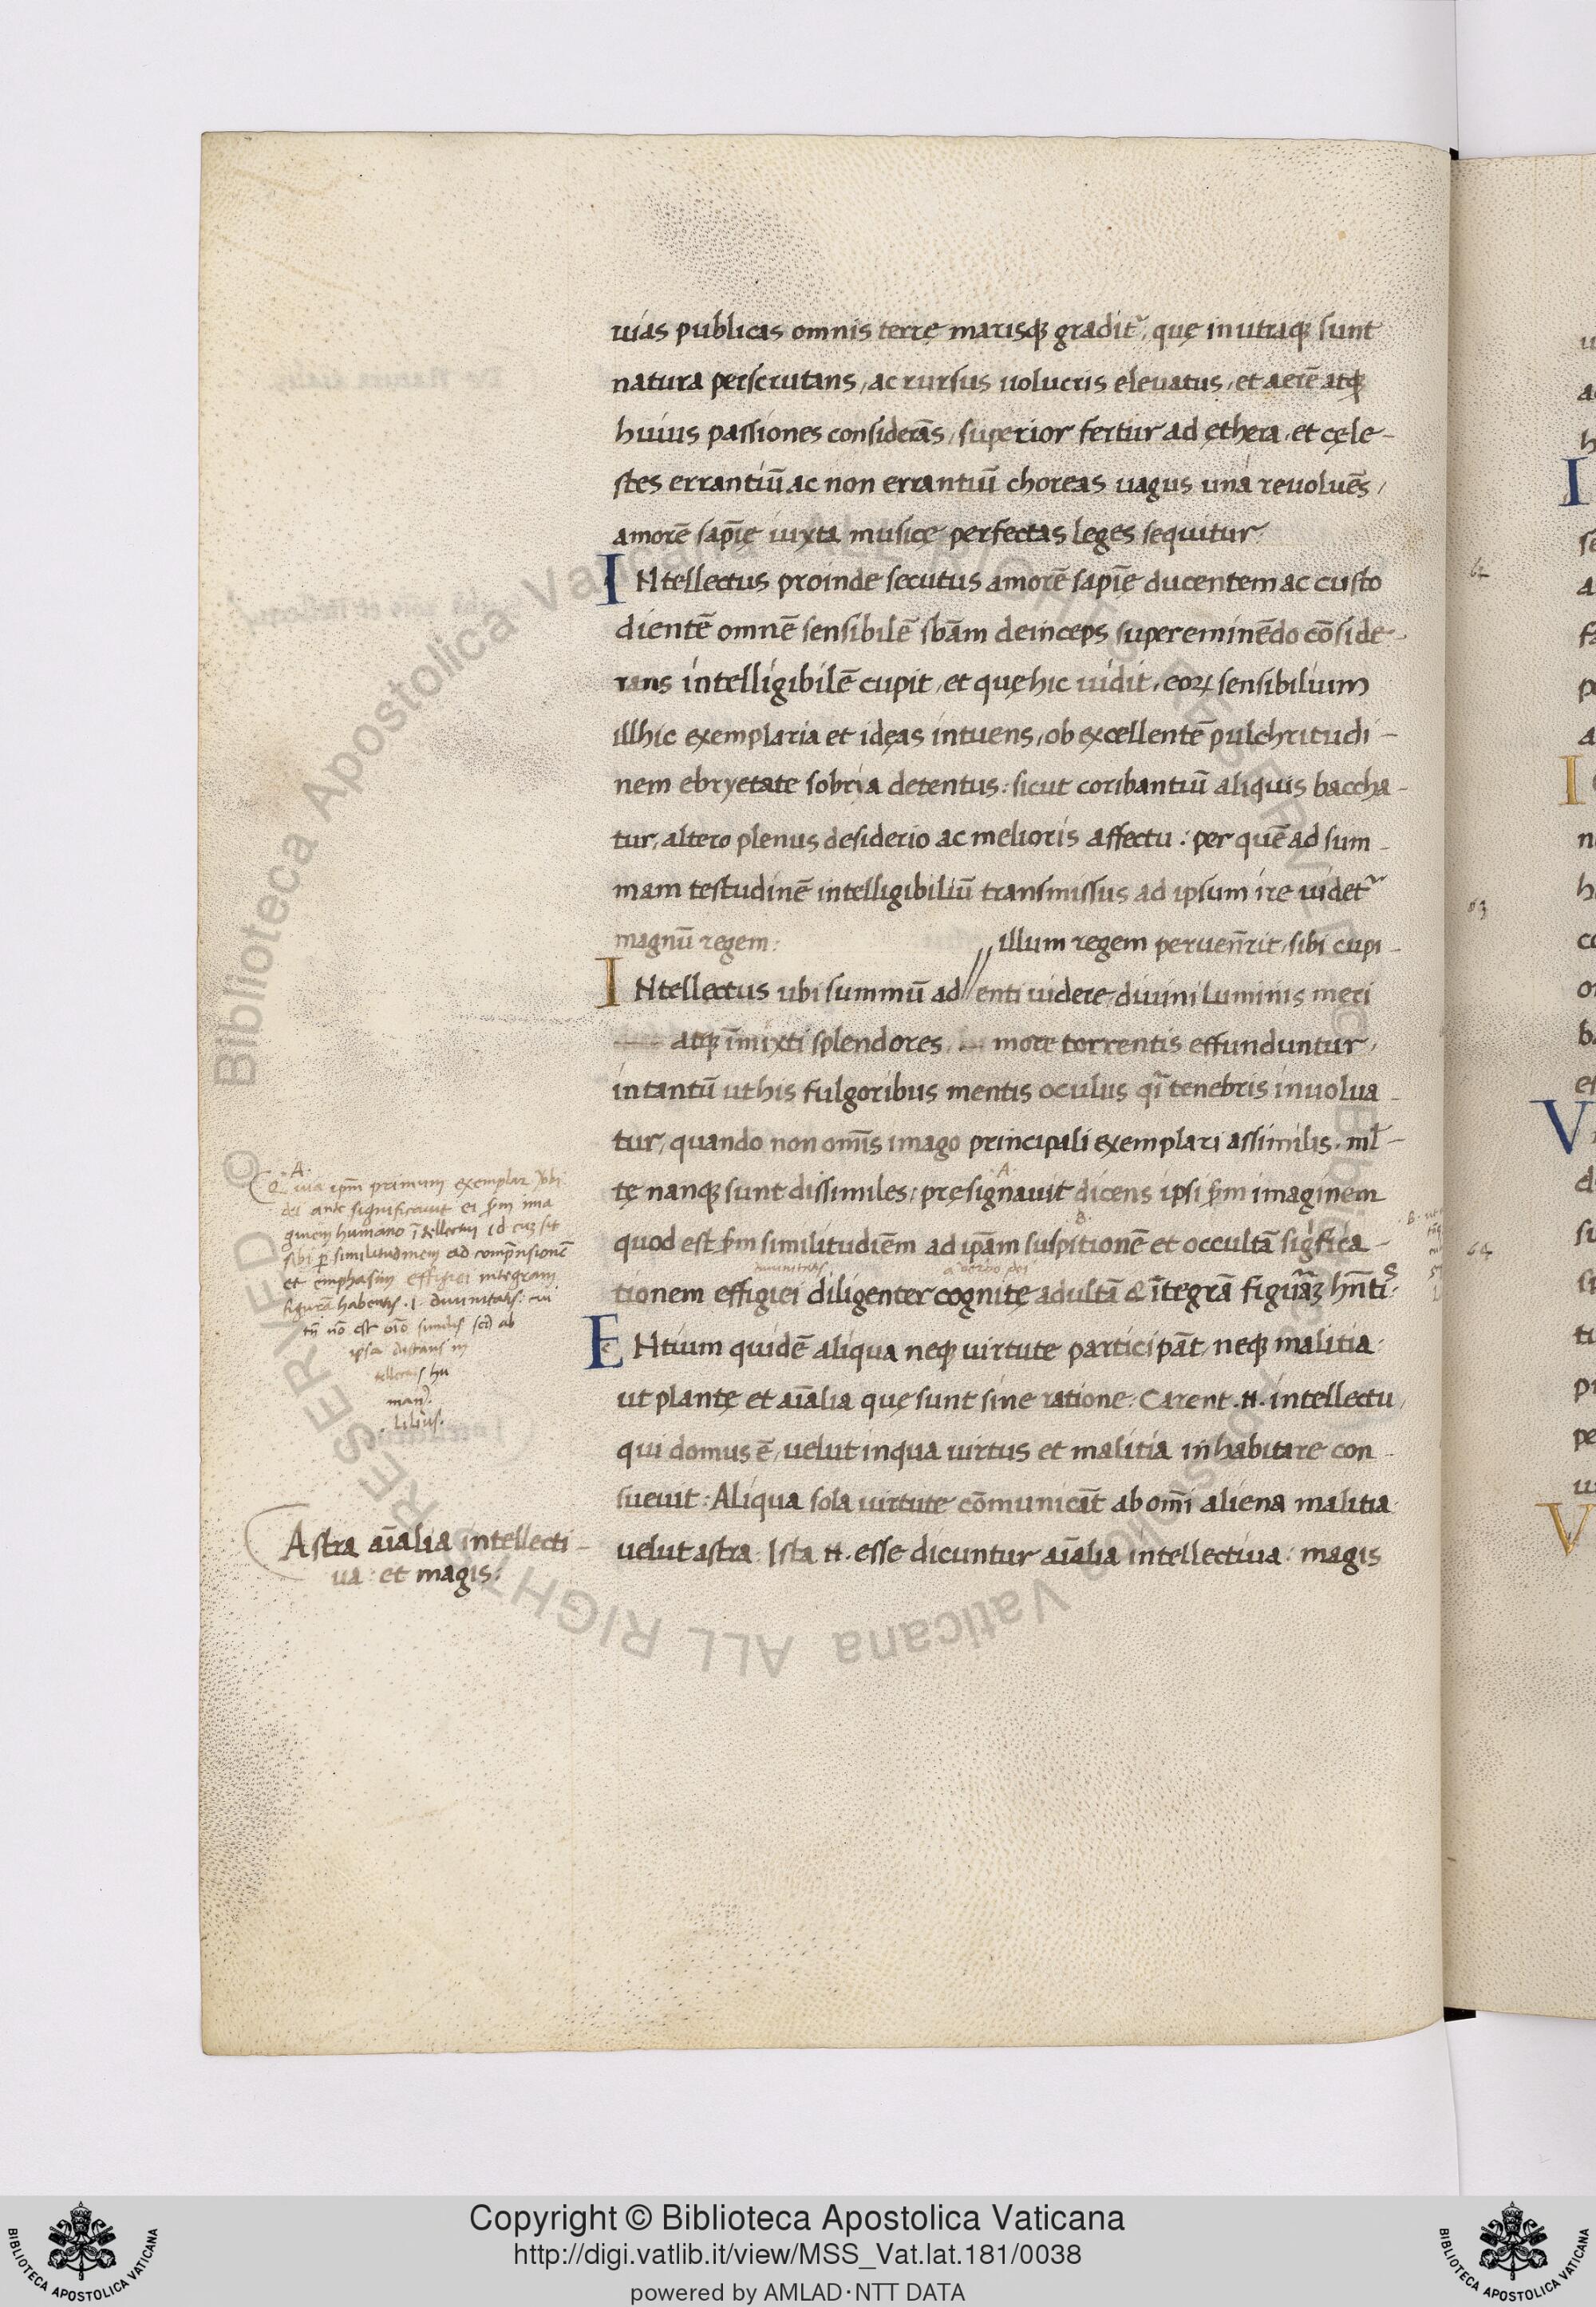 uias publicas omnis terrę marisq; gradit᷑, quę in utraq; sunt
natura perscrutans, ac rursus uolucris eleuatus, et aerē atq;
huius passiones considerās, superior fertur ad ęthera, et cęle-
stes errantiū ac non errantiū choreas uagus unà reuoluēs,
amorē sapīę iuxta musicę perfectas leges sequitur.
INtellectus proinde secutus amorē sapīę ducentem ac custo
dientē omnē sensibilē sbām deinceps supereminēdo cōside-
rans intelligibilē cupit, et quę hic uidit, eoꝝ sensibilium
illhic exemplaria et idęas intuens, ob excellentē pulchritudi-
nem ebryetate sobria detentus: sicut coribantiū aliquis baccha-
tur, altero plenus desiderio ac melioris affectu: per quē ad sum-
mam testudinē intelligibiliū transmissus ad ipsum ire uidet᷑
magnū regem: // illum regem peruen̄rit, sibi cupi-
INtellectus ubi summū ad // enti uidere, diuini luminis meri
atq; īmixti splendores more torrentis effunduntur,
in tantū ut his fulgoribus mentis oculus qī tenebris inuolua-
tur, quando non om̄s imago principali exemplari assimilis. ml̄-
tę nanq; sunt dissimiles: presignauit dicens ipsi ꝓm imaginem
quod est ꝓm similitudiēm ad ip̄am suspitionē et occultā sigfica-
tionem effigiei diligenter cognitę adultā & ītegrā figurāꝫ hn̄tis:
ENtium quidē aliqua neq; uirtute participāt, neq; malitia:
ut plantę et aīalia quę sunt sine ratione: Carent .n. intellectu,
qui domus ē, uelut in qua uirtus et malitia inhabitare con-
sueuit: Aliqua sola uirtute cōmunicāt ab om̄i aliena malitia
uelut astra: Ista .n. esse dicuntur aīalia intellectiua: magis
.A.
Quia ipm̄ primum exemplar
dei ante significauit ei ꝓm ima
ginem humano ītellectui id
sibi ꝑ similitudinem ad
et emphasim effigiei integram
figurā habentis .i. diuinitatis:
Astra aīalia intellecti-
ua: et magis:
62
63
64
Copyright © Biblioteca Apostolica Vaticana
http://digi.vatlib.it/view/MSS_Vat.lat.181/0038
powered by AMLAD·NTT DATA
BIBLIOTECA APOSTOLICA VATICANA
BIBLIOTECA APOSTOLICA VATICANA
© Biblioteca Apostolica Vaticana ALL RIGHTS RESERVED